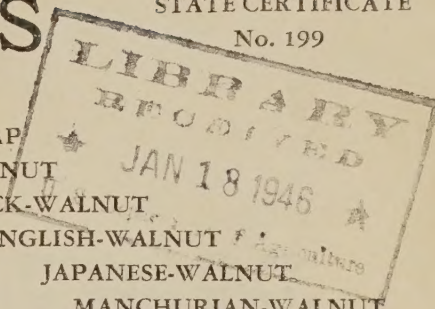 S
STATE CERTIFICATE
No. 199
LIBRARY
RECEIVED
JAN 18 1946
AP
NUT
CK-WALNUT
NGLISH-WALNUT
JAPANESE-WALNUT
MANCHURIAN-WALNUT